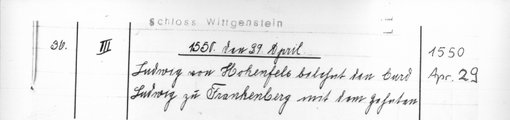 Schloss Wittgenstein
36. III 1550. den 29. April 1550
Ludwig von Hohenfels belehnt den Curd Apr. 29
Ludwig zu Frankenberg mit dem Zehnten